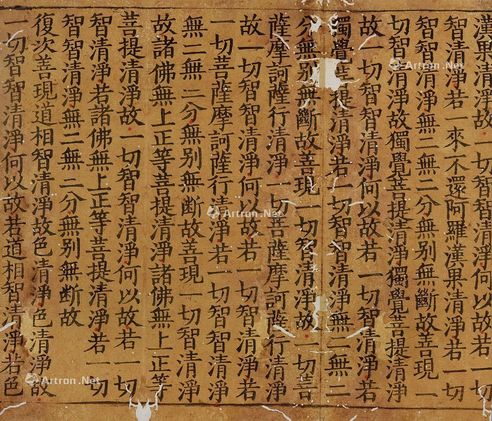 漢果清淨故一切智智清淨何以故若一切
智清淨若一來不還阿羅漢果清淨若一切
智智清淨無二無二分無別無斷故善現一
切智清淨故獨覺菩提清淨獨覺菩提清淨
故一切智智清淨何以故若一切智清淨若
獨覺菩提清淨若一切智智清淨無二無二
分無別無斷故善現一切智清淨故一切菩
薩摩訶薩行清淨一切菩薩摩訶薩行清淨
故一切智智清淨何以故若一切智清淨若
一切菩薩摩訶薩行清淨若一切智智清淨
無二無二分無別無斷故善現一切智清淨
故諸佛無上正等菩提清淨諸佛無上正等
菩提清淨故一切智智清淨何以故若一切
智清淨若諸佛無上正等菩提清淨若一切
智智清淨無二無二分無別無斷故
復次善現道相智清淨故色清淨色清淨故
一切智智清淨何以故若道相智清淨若色
Artron.Net
Artron.Net
Artron.Net
Artron.Net
Artron.Net